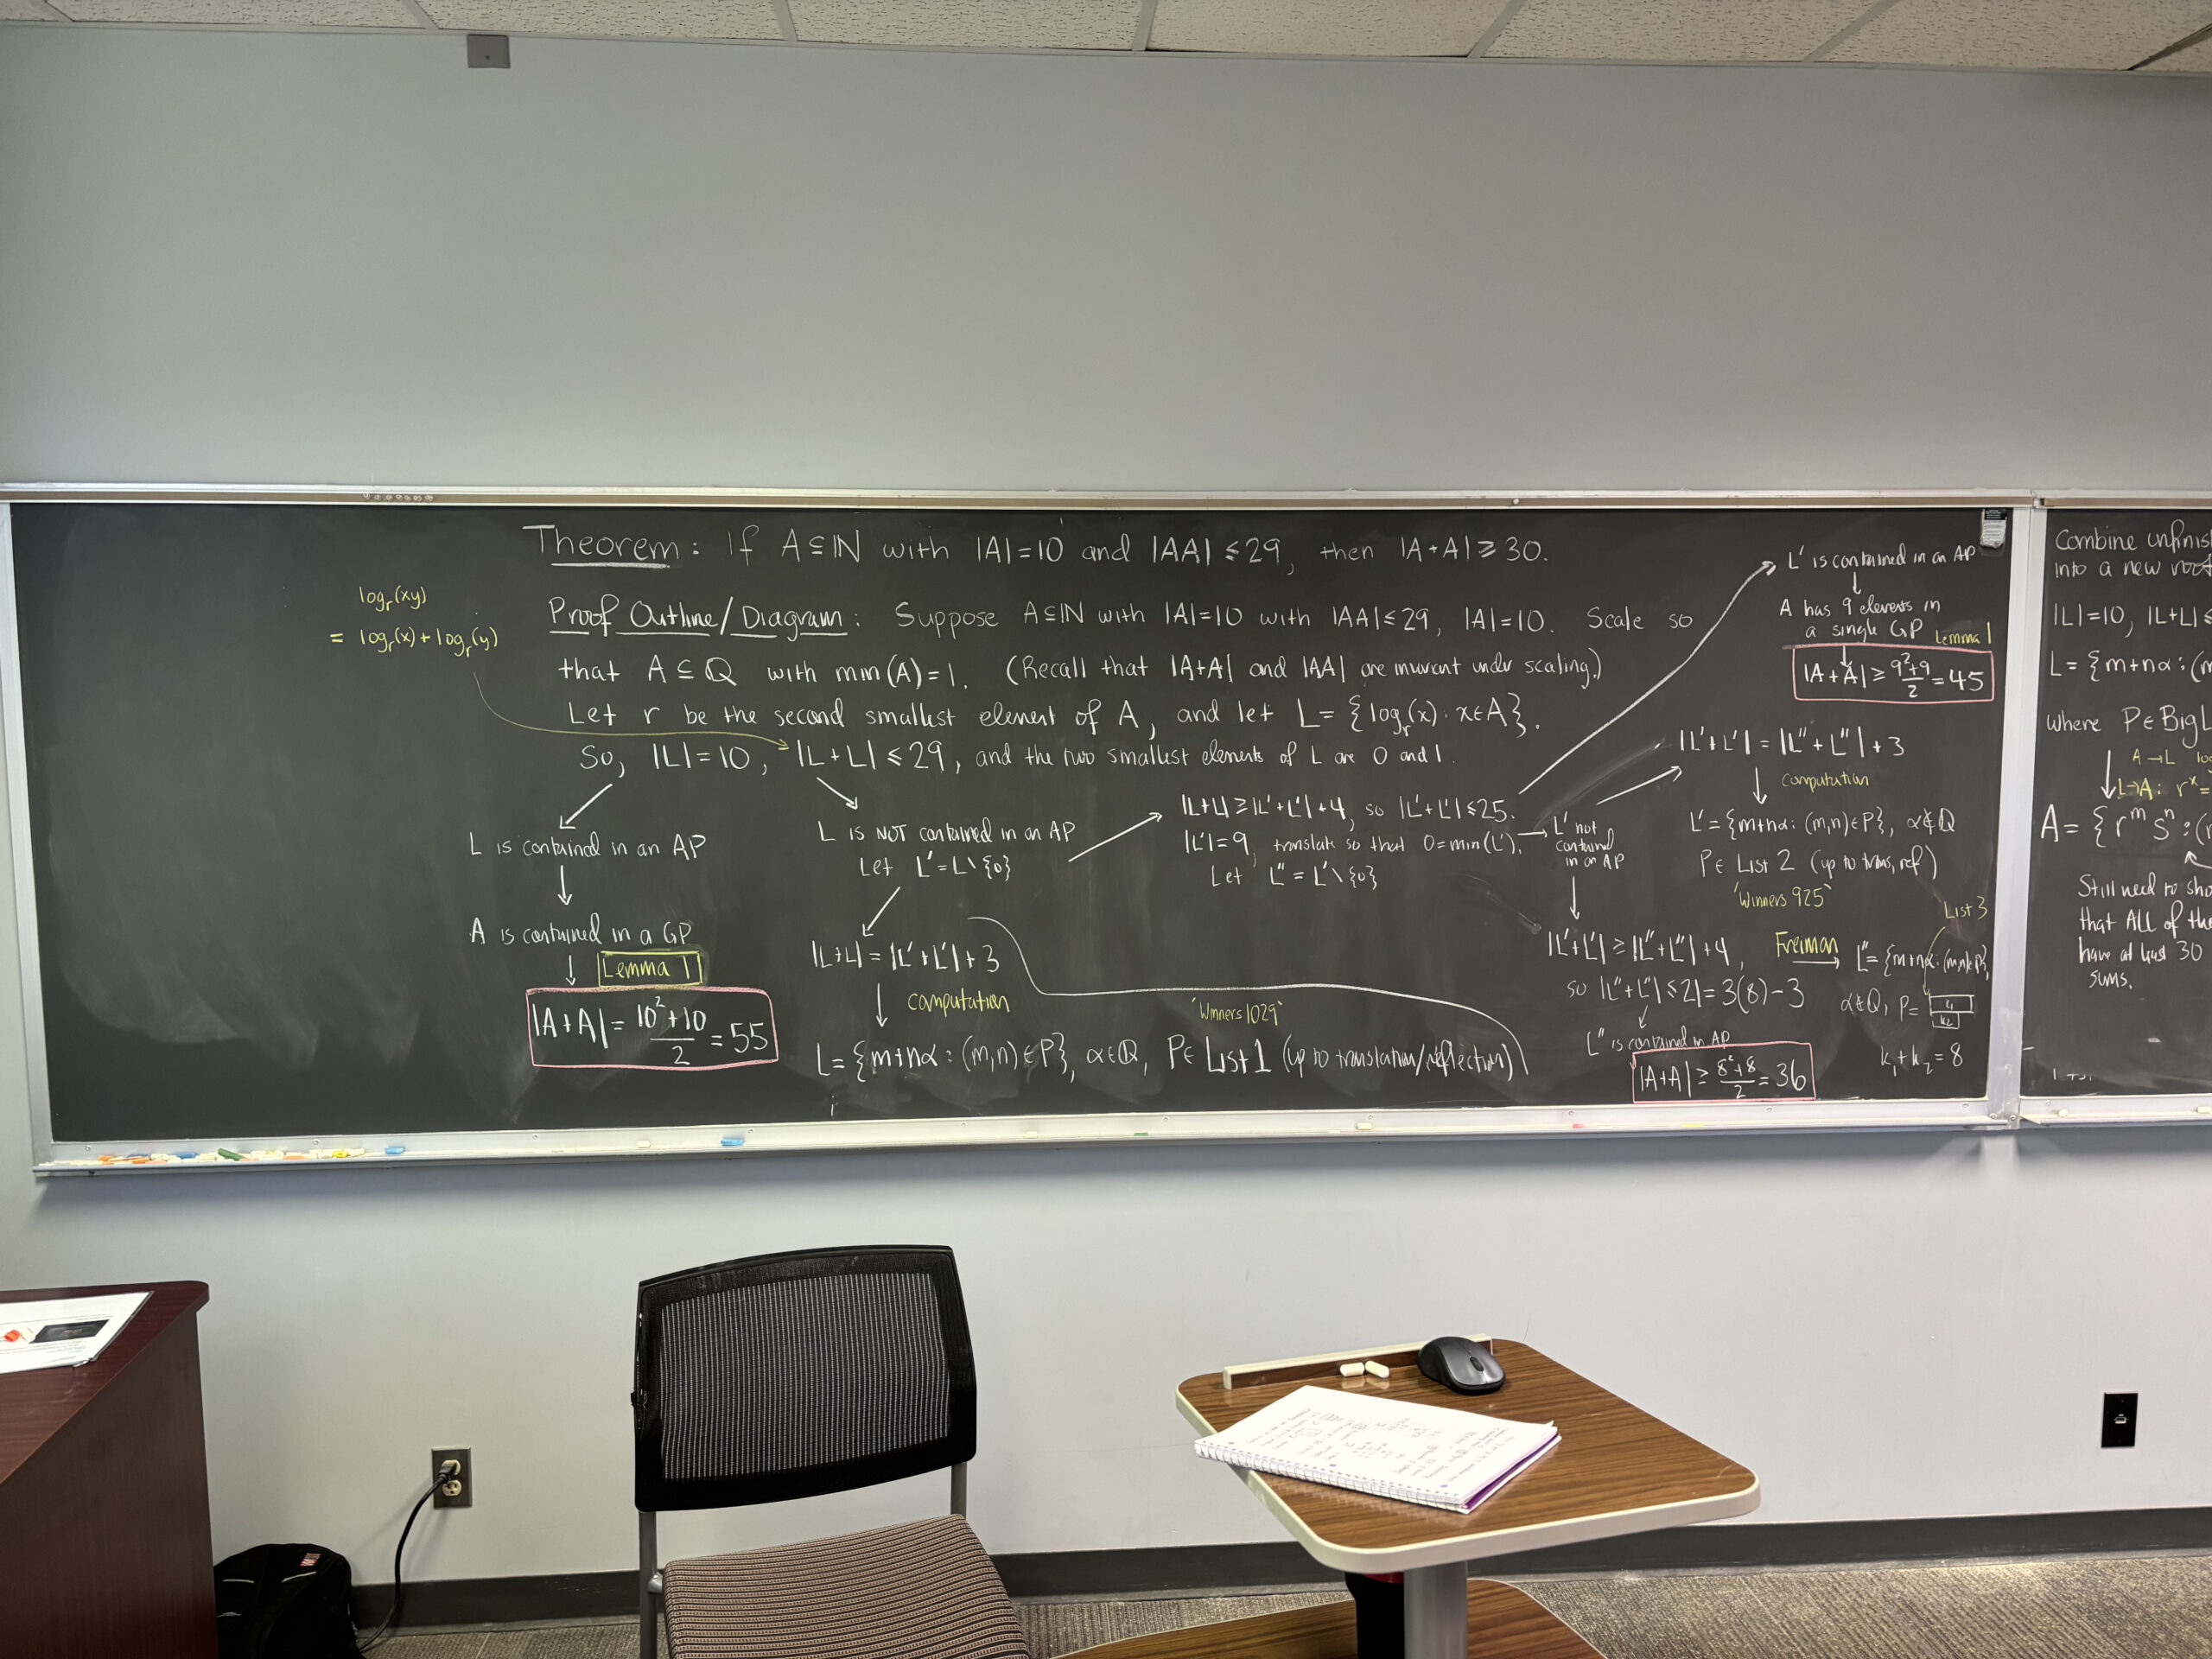 Theorem: If A⊆ℕ with |A|=10 and |AA|≤29, then |A+A|≥30.
log_r(xy)
= log_r(x)+log_r(y)
Proof Outline/Diagram: Suppose A⊆ℕ with |A|=10 with |AA|≤29, |A|=10. Scale so
that A⊆ℚ with min(A)=1. (Recall that |A+A| and |AA| are invariant under scaling.)
Let r be the second smallest element of A, and let L={log_r(x) : x∈A}.
So, |L|=10, |L+L|≤29, and the two smallest elements of L are 0 and 1.
L is contained in an AP
A is contained in a GP
Lemma 1
|A+A| = (10²+10)/2 = 55
L is NOT contained in an AP
Let L'=L\{0}
|L+L| = |L'+L'|+3
computation
'Winners 1029'
L={m+nα : (m,n)∈P}, α∈ℚ, P∈List 1 (up to translation/reflection)
|L+L|≥|L'+L'|+4, so |L'+L'|≤25.
|L'|=9, translate so that 0=min(L').
Let L''=L'\{0}
L' is contained in an AP
A has 9 elements in
a single GP Lemma 1
|A+A| ≥ (9²+9)/2 = 45
L' not
contained
in an AP
|L'+L'| = |L''+L''|+3
computation
L'={m+nα: (m,n)∈P}, α∉ℚ
P∈ List 2 (up to trans, ref)
'Winners 925'
|L'+L'| ≥ |L''+L''|+4,
so |L''+L''|≤21=3(8)-3
L'' is contained in AP
|A+A| ≥ (8²+8)/2 = 36
Freiman
List 3
L''={m+nα: (m,n)∈P},
α∉ℚ, P=
k₁
k₂
k₁+k₂=8
Combine unfinis
into a new root
|L|=10, |L+L|≤
L={m+nα:(m
where P∈BigL
A→L lo
L→A: r^x=
A={r^m s^n:(
Still need to sho
that ALL of the
have at least 30
sums.